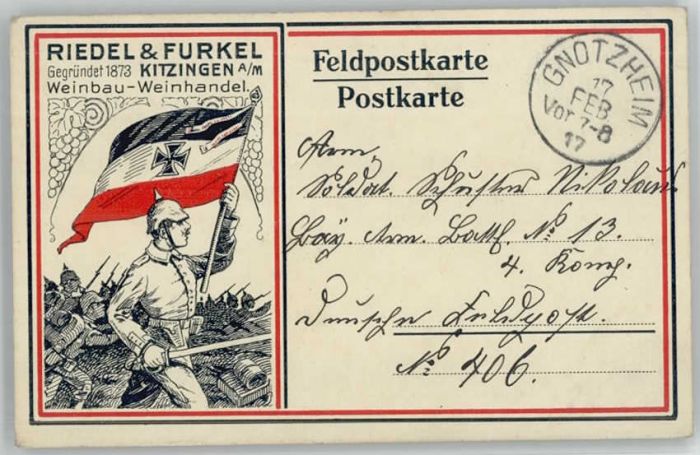 RIEDEL & FURKEL
Gegründet 1873 KITZINGEN A/M
Weinbau-Weinhandel.
Feldpostkarte
Postkarte
GNOTZHEIM
17
FEB
Vor 7-8
17
Arm.
Soldat. Schuster Nikolaus
Bay. Arm. Batl. No 13.
4. Komp.
Deutsche Feldpost.
No 406.